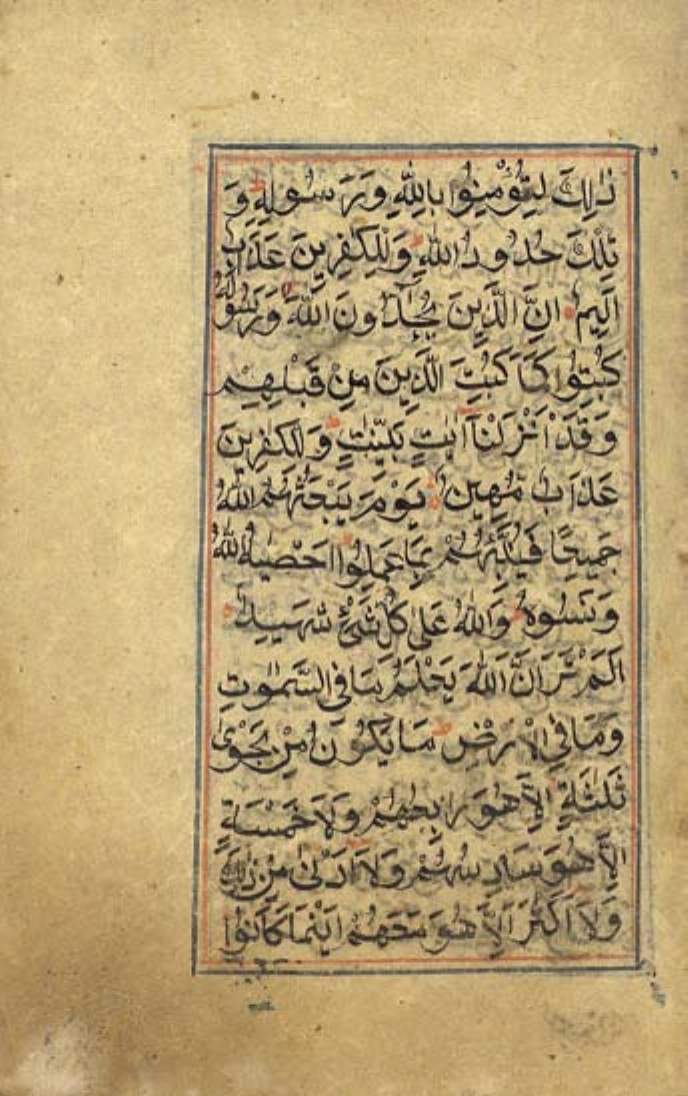 ذٰلِكَ لِتُؤْمِنُوا بِاللّٰهِ وَرَسُولِهٖ وَ
تِلْكَ حُدُودُ اللّٰهِ وَلِلْكٰفِرِينَ عَذَابٌ
اَلِيمٌ اِنَّ الَّذِينَ يُحَآدُّونَ اللّٰهَ وَرَسُولَهُ
كُبِتُوا كَمَا كُبِتَ الَّذِينَ مِنْ قَبْلِهِمْ
وَقَدْ اَنْزَلْنَا اٰيٰتٍ بَيِّنٰتٍ وَلِلْكٰفِرِينَ
عَذَابٌ مُهِينٌ يَوْمَ يَبْعَثُهُمُ اللّٰهُ
جَمِيعًا فَيُنَبِّئُهُمْ بِمَا عَمِلُوا اَحْصٰيهُ اللّٰهُ
وَنَسُوهُ وَاللّٰهُ عَلٰى كُلِّ شَيْءٍ شَهِيدٌ
اَلَمْ تَرَ اَنَّ اللّٰهَ يَعْلَمُ مَا فِي السَّمٰوٰتِ
وَمَا فِي الْاَرْضِ مَا يَكُونُ مِنْ نَجْوٰى
ثَلٰثَةٍ اِلَّا هُوَ رَابِعُهُمْ وَلَا خَمْسَةٍ
اِلَّا هُوَ سَادِسُهُمْ وَلَا اَدْنٰى مِنْ ذٰلِكَ
وَلَا اَكْثَرَ اِلَّا هُوَ مَعَهُمْ اَيْنَمَا كَانُوا